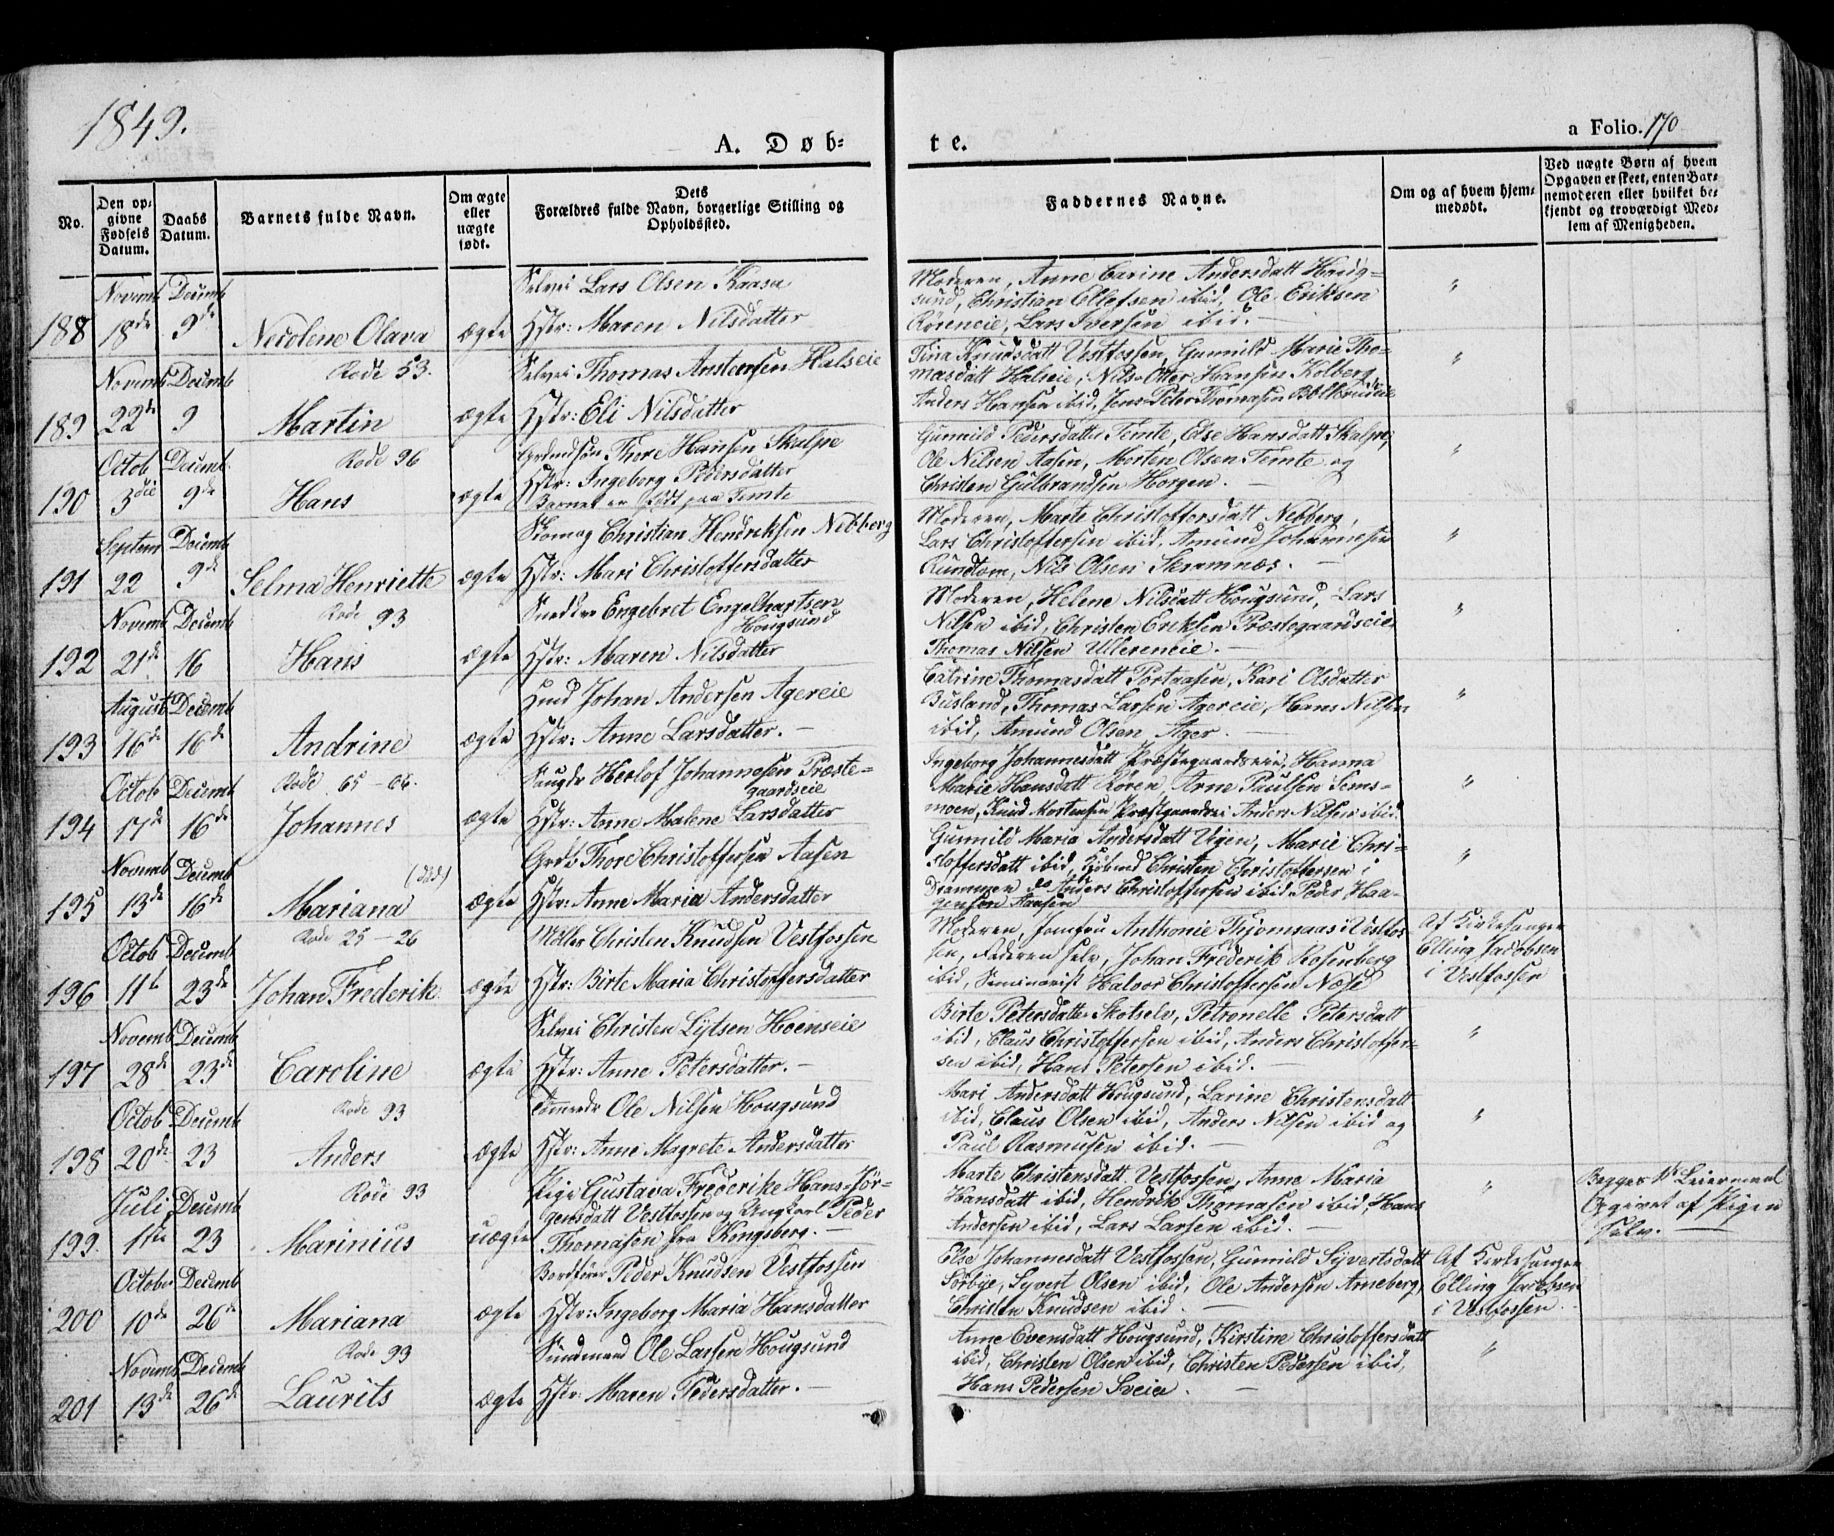 1849.
A. Døb-
te.
a Folio. 170
No.
Den op-
givne
Fødsels
Datum.
Daabs
Datum.
Barnets fulde Navn.
Om ægte
eller
uægte
født.
Dets
Forældres fulde Navn, borgerlige Stilling og
Opholdssted.
Faddernes Navne.
Om og af hvem hjem-
medøbt.
Ved uægte Børn af hvem
Opgaven er skeet, enten Bar-
nemoderen eller hvilket be-
kjendt og troværdigt Med-
lem af Menigheden.
188 Novemb 18de Decemb 9de Nicolene Olava ægte
Selvei Lars Olsen Kaasa
Hstr: Maren Nilsdatter
Moderen, Anne Carine Andersdatt Houg-
sund, Christian Ellefsen ibid, Ole Eriksen
Røreneie, Lars Iversen ibid. "
Rode 53.
189 Novemb 22de Decemb 9 Martin ægte
Selvei Thomas Anstensen Halseie
Hstr: Eli Nilsdatter
Tina Knudsdatt Vestfossen, Gunnild Marie Tho-
masdatt Halseie, Nils Otter Hansen Kolberg
Anders Hansen ibid, Jens Peter Thomasen "
Rode 96
190 Octob 3die Decemb. 9de Hans ægte
Thore Hansen Skalpe
Hstr: Ingeborg Pedersdatter
Barnet er født paa Temte
Gunnild Pedersdatter Temte, Else Hansdatt Skalpe,
Ole Nilsen Aasen, Morten Olsen Temte og
Christen Gulbrandsen Horgen. "
191 Septem 22 Decemb 9de Selma Henriette ægte
Skomag Christian Hendriksen Nebberg
Hstr: Mari Christoffersdatter
Moderen, Marte Christoffersdatt Nebberg,
Lars Christoffersen ibid, Amund Johannesen
Rundtom, Nils Olsen Skramnæs. "
Rode 93
192 Novemb 21de Decemb 16 Hans ægte
Snedker Engebret Engelhartsen
Hougsund
Hstr: Maren Nilsdatter
Moderen, Helene Nilsdatt Hougsund, Lars
Nilsen ibid, Christen Eriksen Præstegaardseie,
Thomas Nilsen Ullereneie. "
193 August 16de Decemb 16de Andrine ægte
Huus Johan Andersen Agereie
Hstr: Anne Larsdatter.
Catrine Thomasdatt Portaasen, Kari Olsdatter
Busland, Thomas Larsen Agereie, Hans Nilsen
ibid, Amund Olsen Ager. "
Rode 65-66.
194 Octob 17de Decemb 16de Johannes ægte
Herlof Johannesen Præste-
gaardseie
Hstr: Anne Malene Larsdatter
Ingeborg Johannesdatt Præstegaardseie, Hanna
Marie Hansdatt Røren, Arne Paulsen Tems-
moen, Knud Mortensen Præstgaardseie Anders Nilsen ibid. "
195 Novemb 13de Decemb 16de Mariana (død) ægte
Grdb Thore Christoffersen Aasen
Hstr: Anne Maria Andersdatter
Gunnild Maria Andersdatt Vigen, Marie Chri-
stoffersdatt ibid, Kjøbmd Christen Christoffersen i
Drammen do Anders Christoffersen ibid Peder Haa-
gensen Aaasen "
Rode 25-26
196 Octob 11te Decemb 23de Johan Frederik ægte
Møller Christen Knudsen Vestfossen
Hstr: Birte Maria Christoffersdatter
Moderen, Jomfru Anthonie Thjomsaas i Vestfos-
sen, Faderen selv, Johan Frederik Rosenberg
ibid, Seminarist Halvor Christoffersen Næss
Af Kirkesanger
Elling Jacobsen
i Vestfossen
197 Novemb 28de Decemb 23de Caroline ægte
Selvei Christen Lytsen Hoenseie
Hstr: Anne Petersdatter.
Birte Petersdatter Skotselv, Petronelle Petersdatt
ibid, Claus Christoffersen ibid, Anders Christoffer-
sen ibid, Hans Petersen ibid. "
Rode 93
198 Octob 20de Decemb 23 Anders ægte
Tømmerhr Ole Nilsen Hougsund
Hstr: Anne Magrete Andersdatter
Mari Andersdatt Hougsund, Larine Christensdatt
ibid, Claus Olsen ibid, Anders Nilsen ibid og
Paul Rasmusen ibid. "
Rode 93
199. Juli 1ste Decemb 23 Marinius uægte
Pige Gustava Frederike Hans-Jør-
gensdatt Vestfossen og Ungkarl Peder
Thomasen fra Kongsberg.
Marte Christensdatt Vestfossen, Anne Maria
Hansdatt ibid, Hendrik Thomasen ibid, Hans
Andersen ibid, Lars Larsen ibid. "
Begges 1ste Leiermaal
Opgivet af Pigen
selv.
200 October 10de Decemb 26de Mariana ægte
Bordfører Peder Knudsen Vestfossen
Hstr: Ingeborg Maria Hansdatter
Else Johannesdatt Vestfossen, Gunnild Syvertsdatt
Sørbye, Syvert Olsen ibid, Ole Andersen Anneberg,
Christen Knudsen ibid.
Af Kirkesanger
Elling Jacobsen
i Vestfossen.
Rode 93
201 Novemb 13de Decemb 26de Laurits ægte
Ole Larsen Hougsund
Hstr: Maren Pedersdatter.
Anne Evensdatt Hougsund, Kirstine Christoffersdatt
ibid, Christen Olsen ibid, Christen Pedersen ibid,
Hans Pedersen Sveia. "